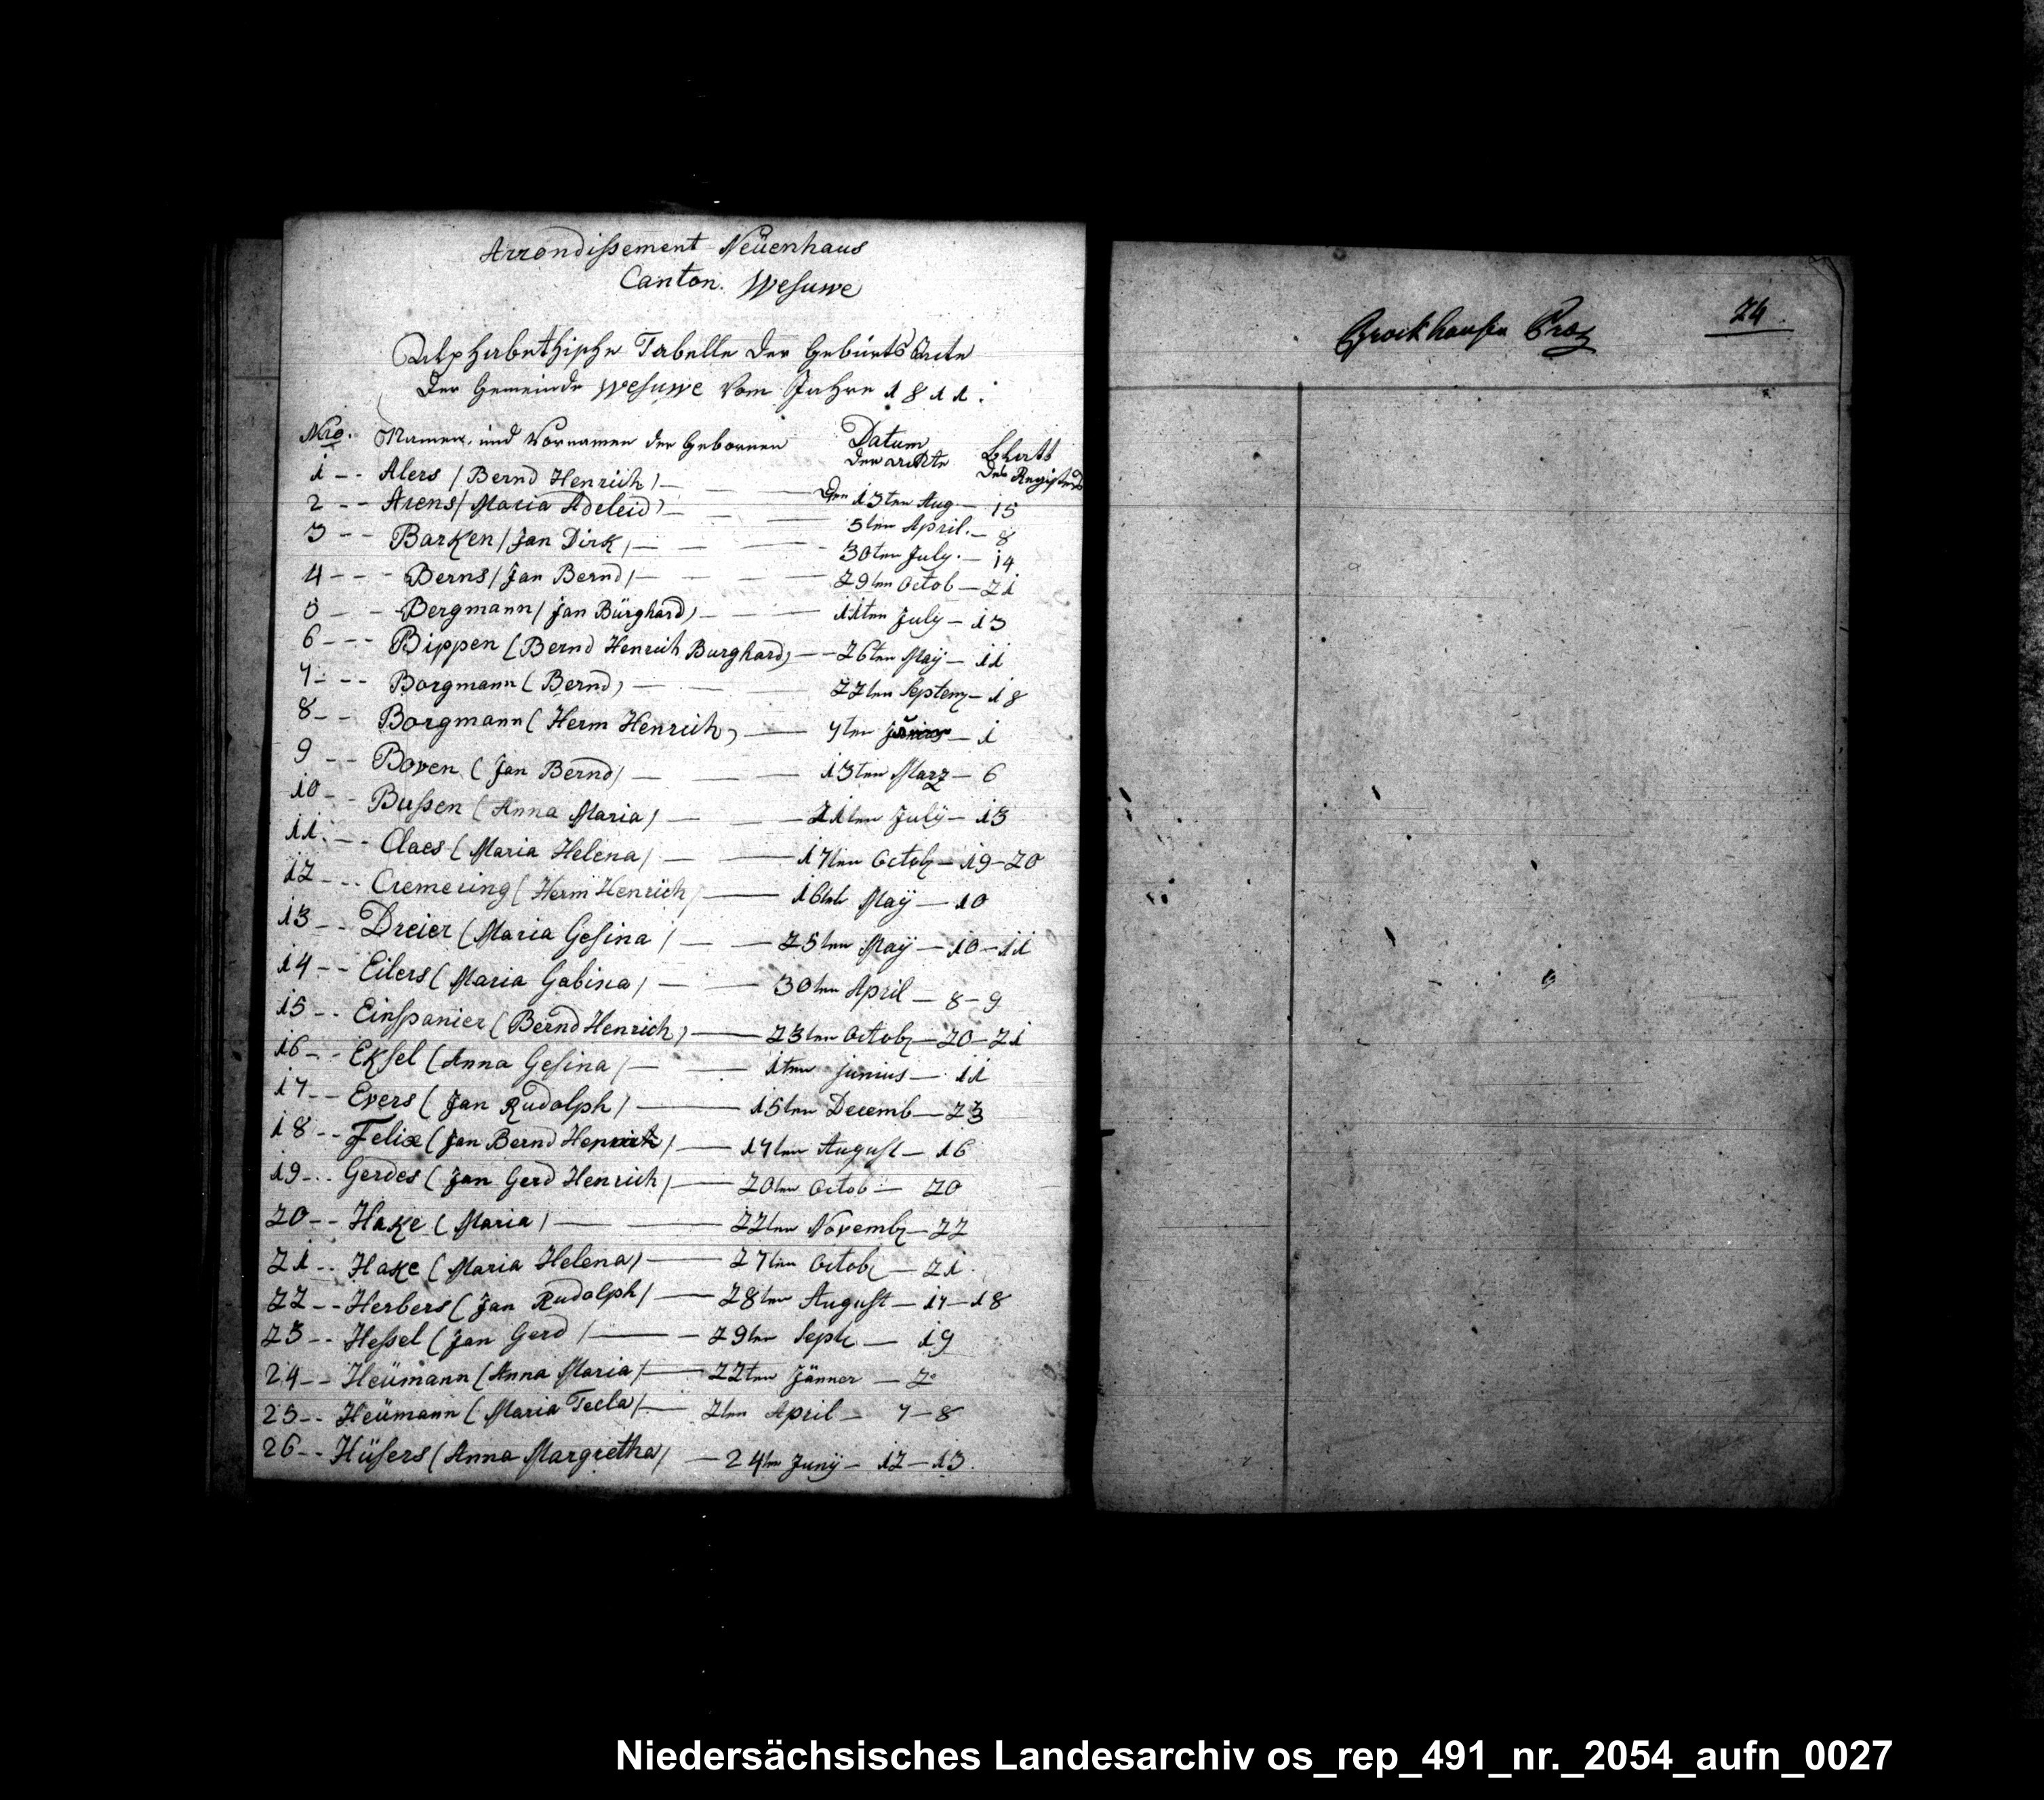 Arrondißement Neüenhaus
Canton. Wesuwe
Alphabethische Tabelle der Gebürts Acte
der Gemeinde Wesuwe vom Jahre 1811.
Nro. Namen und Vornamen der Gebornen Datum der Ackte Blatt des Registers
1 -- Alers (Bernd Henrich) — den 13ten Aug — 15
2 -- Arens (Maria Adeleid) — 5ten April. — 8
3 -- Barken (Jan Dirk) — 30ten July. — 14
4 -- Berns (Jan Bernd) — 29ten Octob — 21
5 -- Bergmann (Jan Bürghard) — 11ten July — 13
6 -- Bippen (Bernd Henrich Burghard) — 26ten Maÿ — 11
7 -- Borgmann (Bernd) — 22ten Septem — 18
8 -- Borgmann (Herm Henrich) — 7ten — 1
9 -- Boven (Jan Bernd) — 13ten Marz — 6
10 -- Bußen (Anna Maria) — 21ten Julÿ — 13
11 -- Claes (Maria Helena) — 17ten Octob — 19-20
12 -- Cremering (Herm Henrich) — 16ten Maÿ — 10
13 -- Dreier (Maria Gesina) — 25ten Maÿ — 10-11
14 -- Eilers (Maria Gabina) — 30ten April — 8-9
15 -- Einspanier (Bernd Henrich) — 23ten Octob — 20-21
16 -- Eksel (Anna Gesina) — 1ten junius — 11
17 -- Evers (Jan Rudolph) — 15ten Decemb — 23
18 -- Felix (Jan Bernd Henrich) — 17ten August — 16
19 -- Gerdes (Jan Gerd Henrich) — 20ten Octob — 20
20 -- Hake (Maria) — 22ten Novemb — 22
21 -- Hake (Maria Helena) — 27ten Octob — 21
22 -- Herbers (Jan Rudolph) — 28ten August — 17-18
23 -- Heßel (Jan Gerd) — 29ten Sept — 19
24 -- Heümann (Anna Maria) — 22ten Jänner — 2
25 -- Heümann (Maria Tecla) — 2ten April — 7-8
26 -- Hüsers (Anna Margretha) — 24ten Junÿ — 12-13.
24.
Niedersächsisches Landesarchiv os_rep_491_nr._2054_aufn_0027